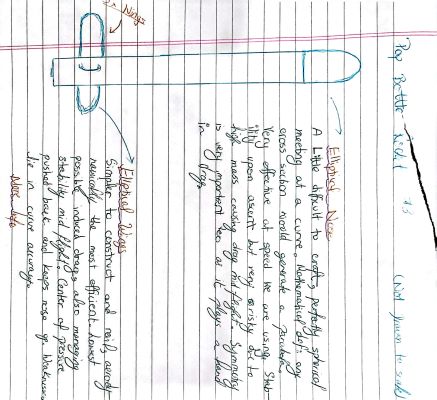 Pop Bottle Rocket #3 (Not drawn to scale)
Elliptical Nose
A Little difficult to craft, perfectly spherical
meeting at a curve. Mathematical def: any
cross section would generate a parabola.
Very effective at speed we are using. Stab-
ility upon ascent but very risky due to
high mass causing drag mid flight. Symmetry
is very important as it plays a hand
in drag.
Elliptical Wings
Simpler to construct and aerody-
namically the most efficient. Lowest
possible induced drag, also managing
stability mid flight. Center of pressure
pushed back and keeps nose up. Weaknesses
lie in curve accuracy.
Wings
More Info